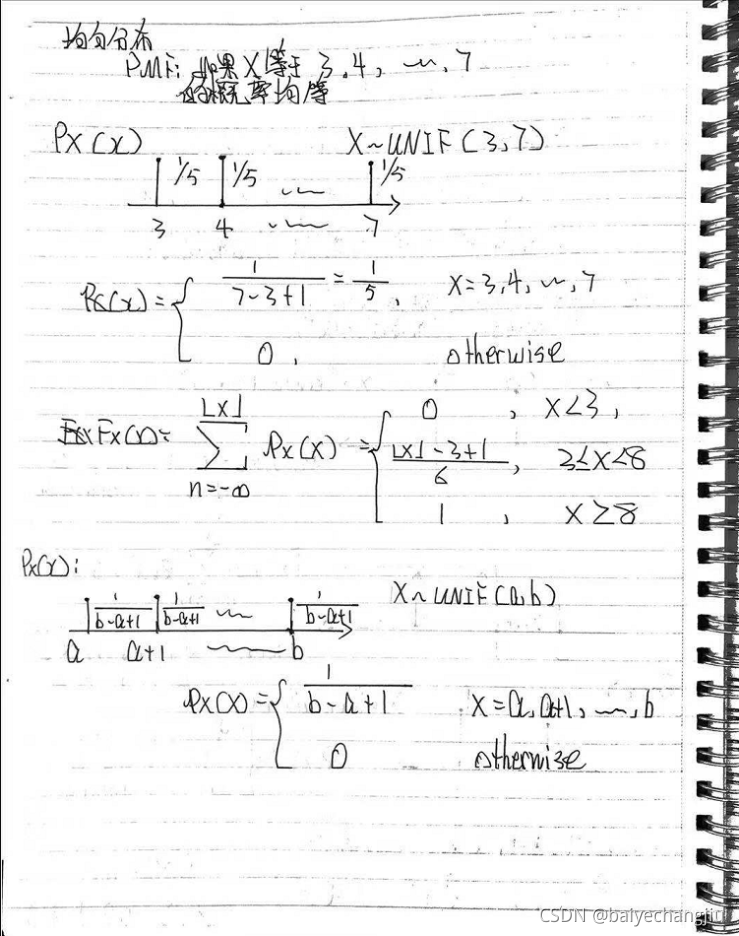 均匀分布
PMF: 如果 X 等于 3, 4, ⋯, 7
的概率均等
PX(x) X~UNIF(3,7)
1/5 1/5 ⋯ 1/5
3 4 ⋯ 7
Px(x) = { 1/(7-3+1) = 1/5, X=3,4,⋯,7
0, otherwise
Fx(x) = ∑_{n=-∞}^{⌊x⌋} Px(X) = { 0, X<3,
(⌊x⌋-3+1)/6, 3≤X<8
1, X≥8
Px(x):
1/(b-a+1) 1/(b-a+1) ⋯ 1/(b-a+1) X~UNIF(a,b)
a a+1 ⋯ b
Px(x) = { 1/(b-a+1) X=a, a+1, ⋯, b
0 otherwise
CSDN @baiyechangjiu